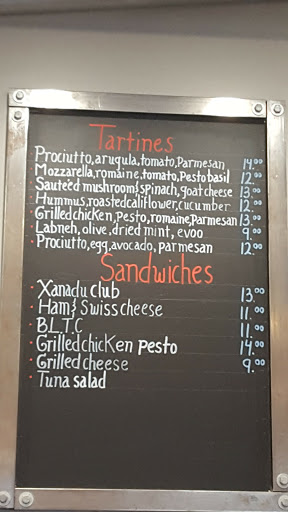 Tartines
Prociutto, arugula, tomato, Parmesan 14.00
Mozzarella, romaine, tomato, Pesto basil 12.00
Sauteéd mushroom & spinach, goat cheese 13.00
Hummus, roasted califlower, cucumber 12.00
Grilled chicken, Pesto, romaine, Parmesan 13.00
Labneh, olive, dried mint, evoo 9.00
Prociutto, egg, avocado, parmesan 12.00
Sandwiches
Xanadu club 13.00
Ham & Swiss cheese 11.00
B.L.T.C 11.00
Grilled chicken pesto 14.00
Grilled cheese 9.00
Tuna salad